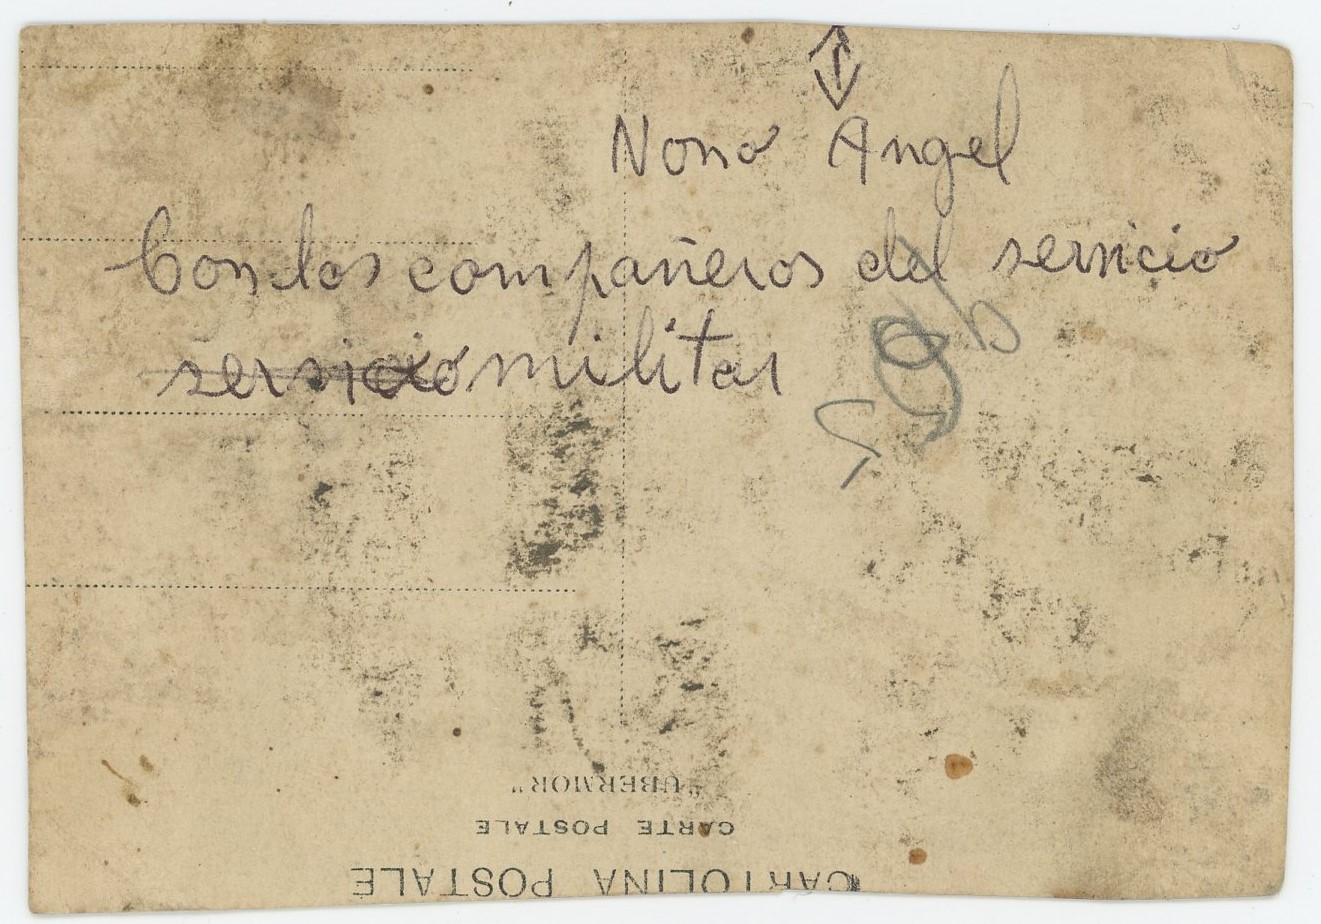 Nono Angel
Con los compañeros del servicio
servicio militar
"UBERMOR"
CARTE POSTALE
CARTOLINA POSTALE